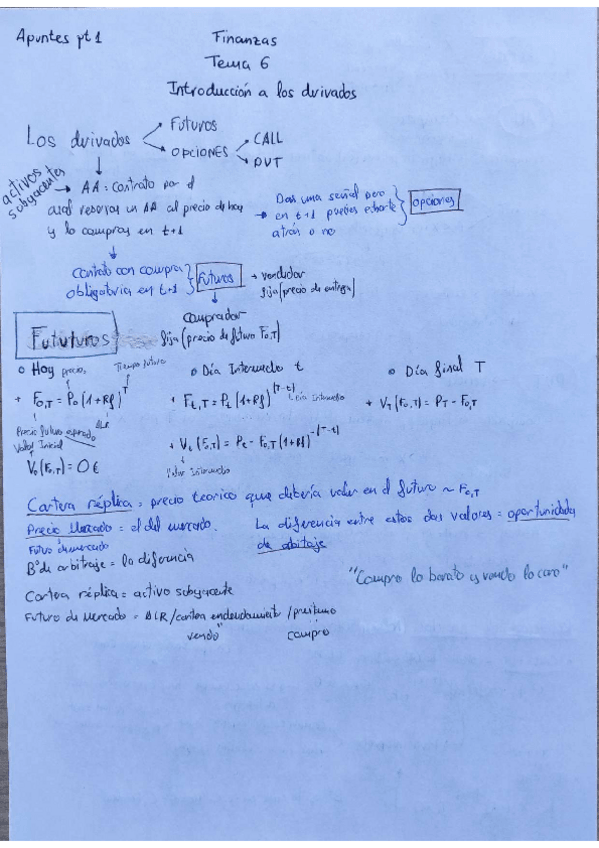 Apuntes pt 1
Finanzas
Tema 6
Introducción a los derivados
Los derivados
Futuros
OPCIONES
CALL
PUT
activos subyacentes
AA: Contrato por el
cual reservar un AA al precio de hoy
y lo compras en t+1
Das una señal pero
en t+1 puedes echarte
atrás o no
opciones
Contrato con compra
obligatoria en t+1
Futuros
vendedor
fija (precio de entrega)
comprador
fija (precio de futuro F0,T)
Fututuros
Hoy
precio,
Tiempo futuro
+ F0,T = P0 (1+Rf)^T
Precio futuro esperado
ALR
Valor Inicial
V0 (F0,T) = 0 €
Día Intermedio t
+ Ft,T = Pt (1+Rf)^(T-t)
Día Intermedio
+ Vt (F0,T) = Pt - F0,T (1+Rf)^-(T-t)
Valor Intermedio
Día final T
+ VT (F0,T) = PT - F0,T
Cartera réplica, precio teorico que debería valer en el futuro ~ F0,T
Precio Mercado = el del mercado.
Futuro de mercado
La diferencia entre estos dos valores = oportunidad
de arbitaje
Bº de arbitraje = la diferencia
"Compro lo barato y vendo lo caro"
Cartera réplica = activo subyacente
Futuro de Mercado = ALR/cartera endeudamiento /prestamo
vendo
compro